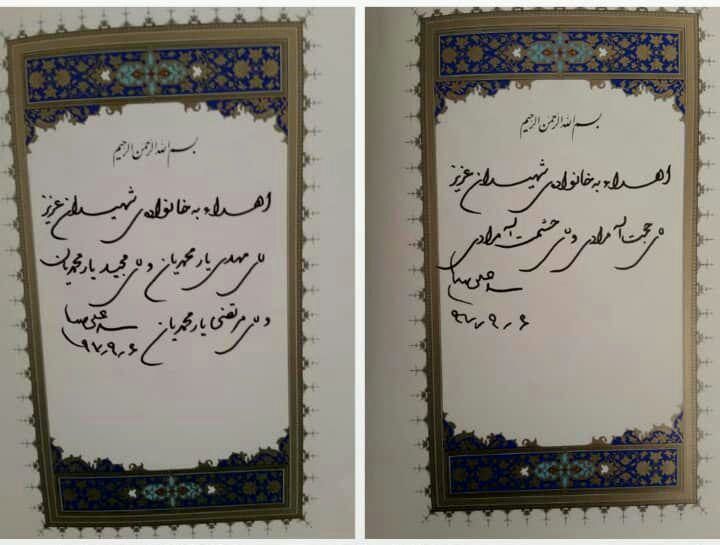 بسم الله الرحمن الرحیم
اهداء به خانواده‌ی شهیدان عزیز
آقای مهدی یارمحمدیان و آقای مجید یارمحمدیان
و آقای مرتضی یارمحمدیان
۹۷٫۹٫۶
بسم الله الرحمن الرحیم
اهداء به خانواده‌ی شهیدان عزیز
آقای حجت اله مرادی و آقای حشمت اله مرادی
۹۷٫۹٫۶